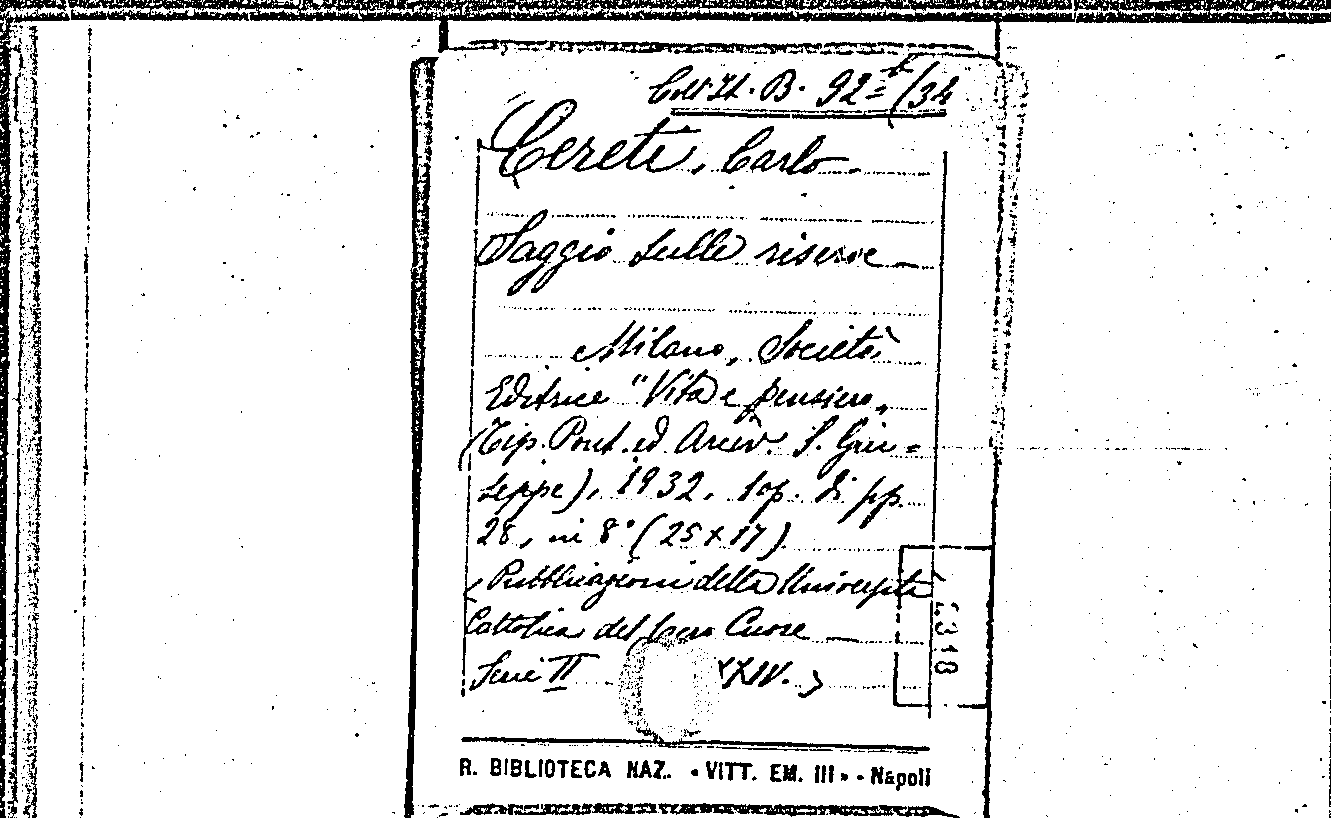 Coll. It. B. 92 /34
Cereti, Carlo.
Saggio sulle riserve
Milano, Società
Editrice "Vita e pensiero„
(Tip. Pont. ed Arciv. S. Giu=
seppe), 1932. 1 op. di pp.
28, in 8° (25×17)
(Pubblicazioni della Università
Cattolica del Sacro Cuore
Serie II XXIV.)
2318
R. BIBLIOTECA NAZ. «VITT. EM. III» - Napoli